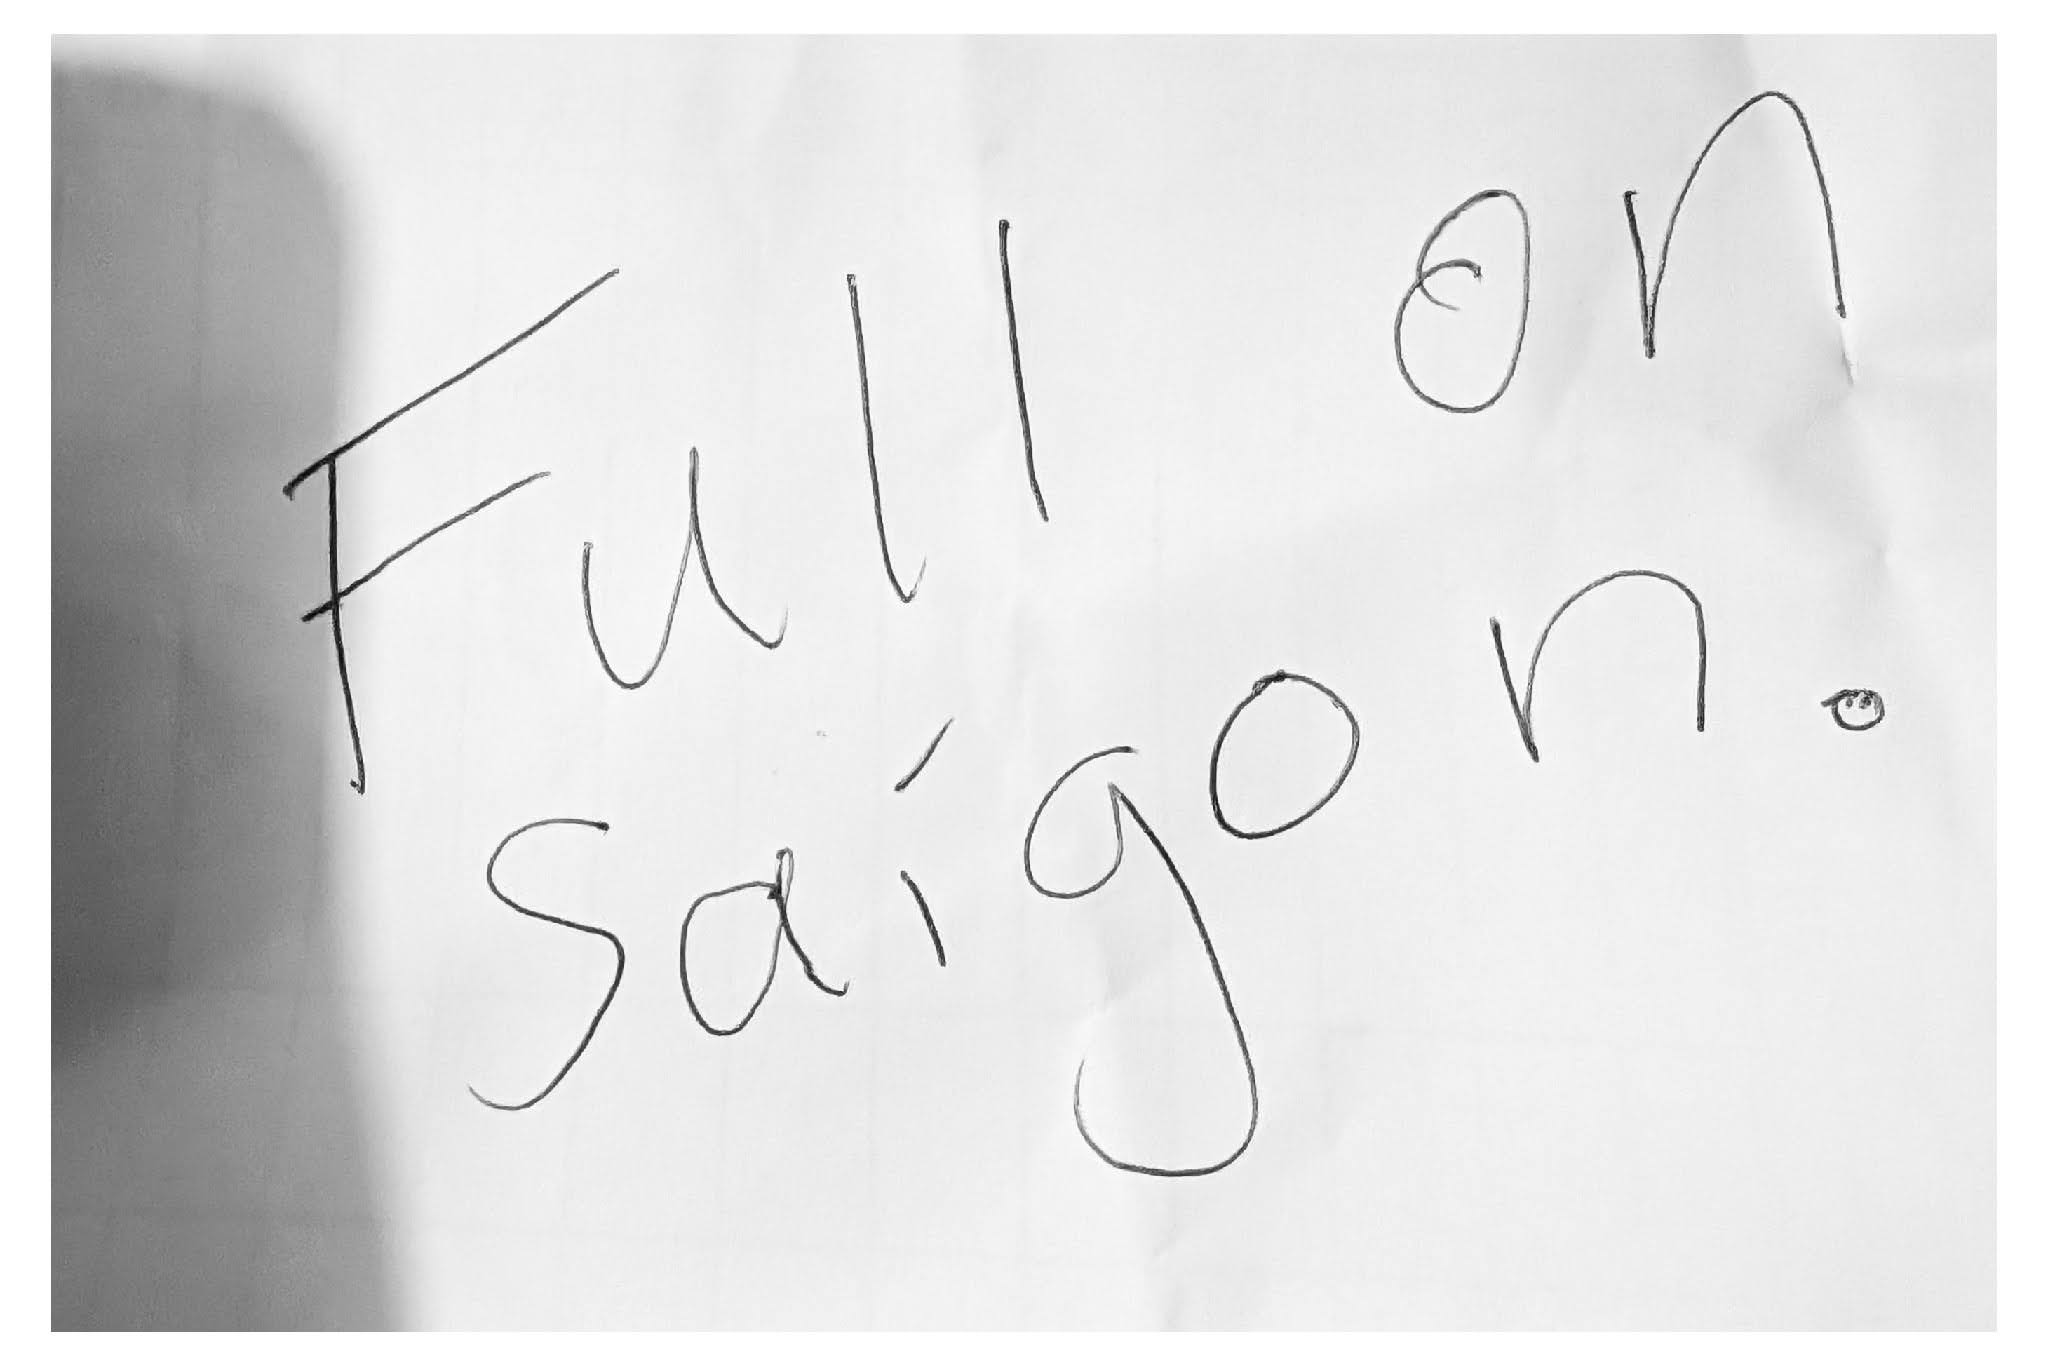 Full on
saigon.